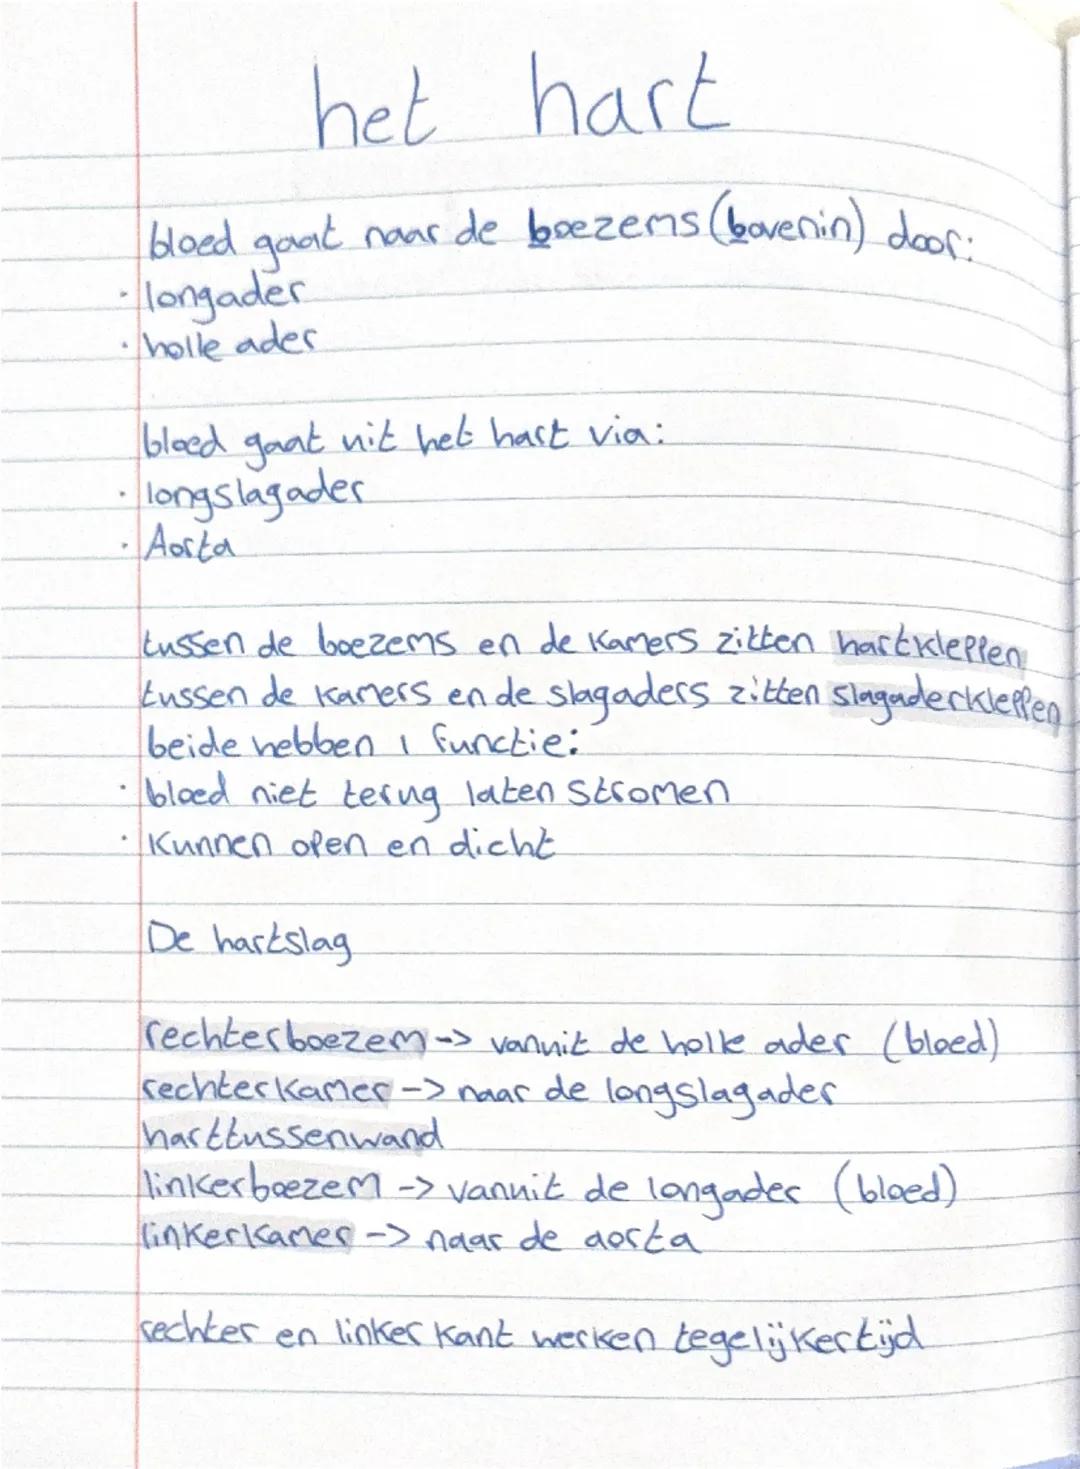 het hart
bloed gaat naar de boezems (bovenin) door:
· longader
· holle ader
bloed gaat uit het hart via:
· longslagader
· Aorta
tussen de boezems en de kamers zitten hartkleppen
tussen de kamers en de slagaders zitten slagaderkleppen
beide hebben 1 functie:
· bloed niet terug laten stromen
· kunnen open en dicht
De hartslag
rechterboezem -> vanuit de holle ader (bloed)
rechterkamer -> naar de longslagader
harttussenwand
linkerboezem -> vanuit de longader (bloed)
linkerkamer -> naar de aorta
rechter en linker kant werken tegelijkertijd